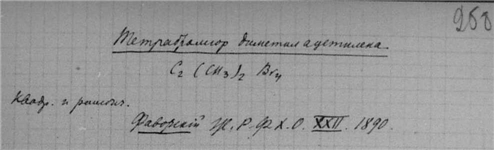 268
Тетрабромюр диметилацетилена
C₂ (CH₃)₂ Br₄
Квадр. и ромбич.
Фаворский Ж. Р. Ф. Х. О. XXII. 1890.